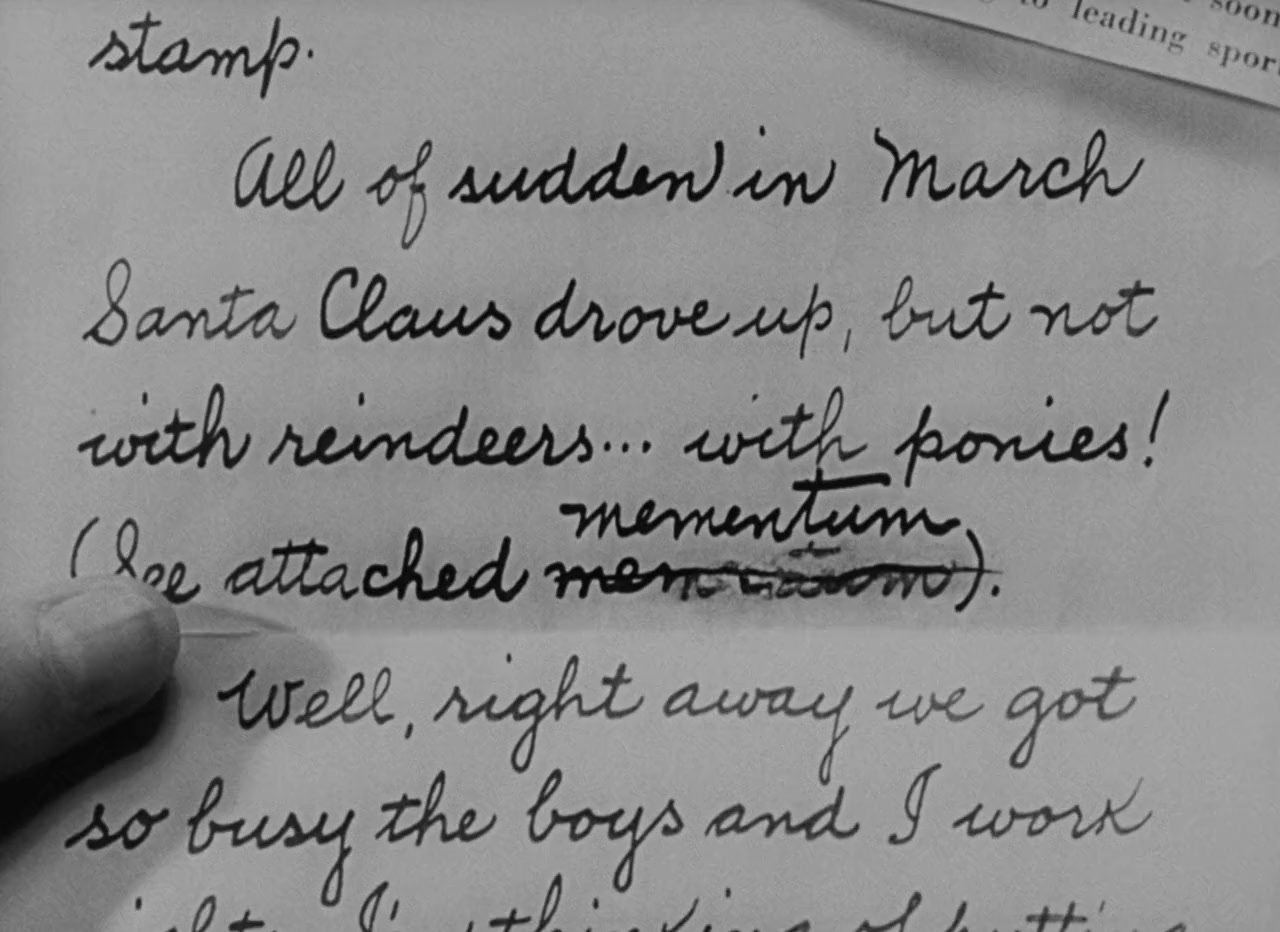 soon
to leading spor
stamp.
All of sudden in March
Santa Claus drove up, but not
with reindeers... with ponies!
mementum
(See attached ).
Well, right away we got
so busy the boys and I work
I'm thinking of putting